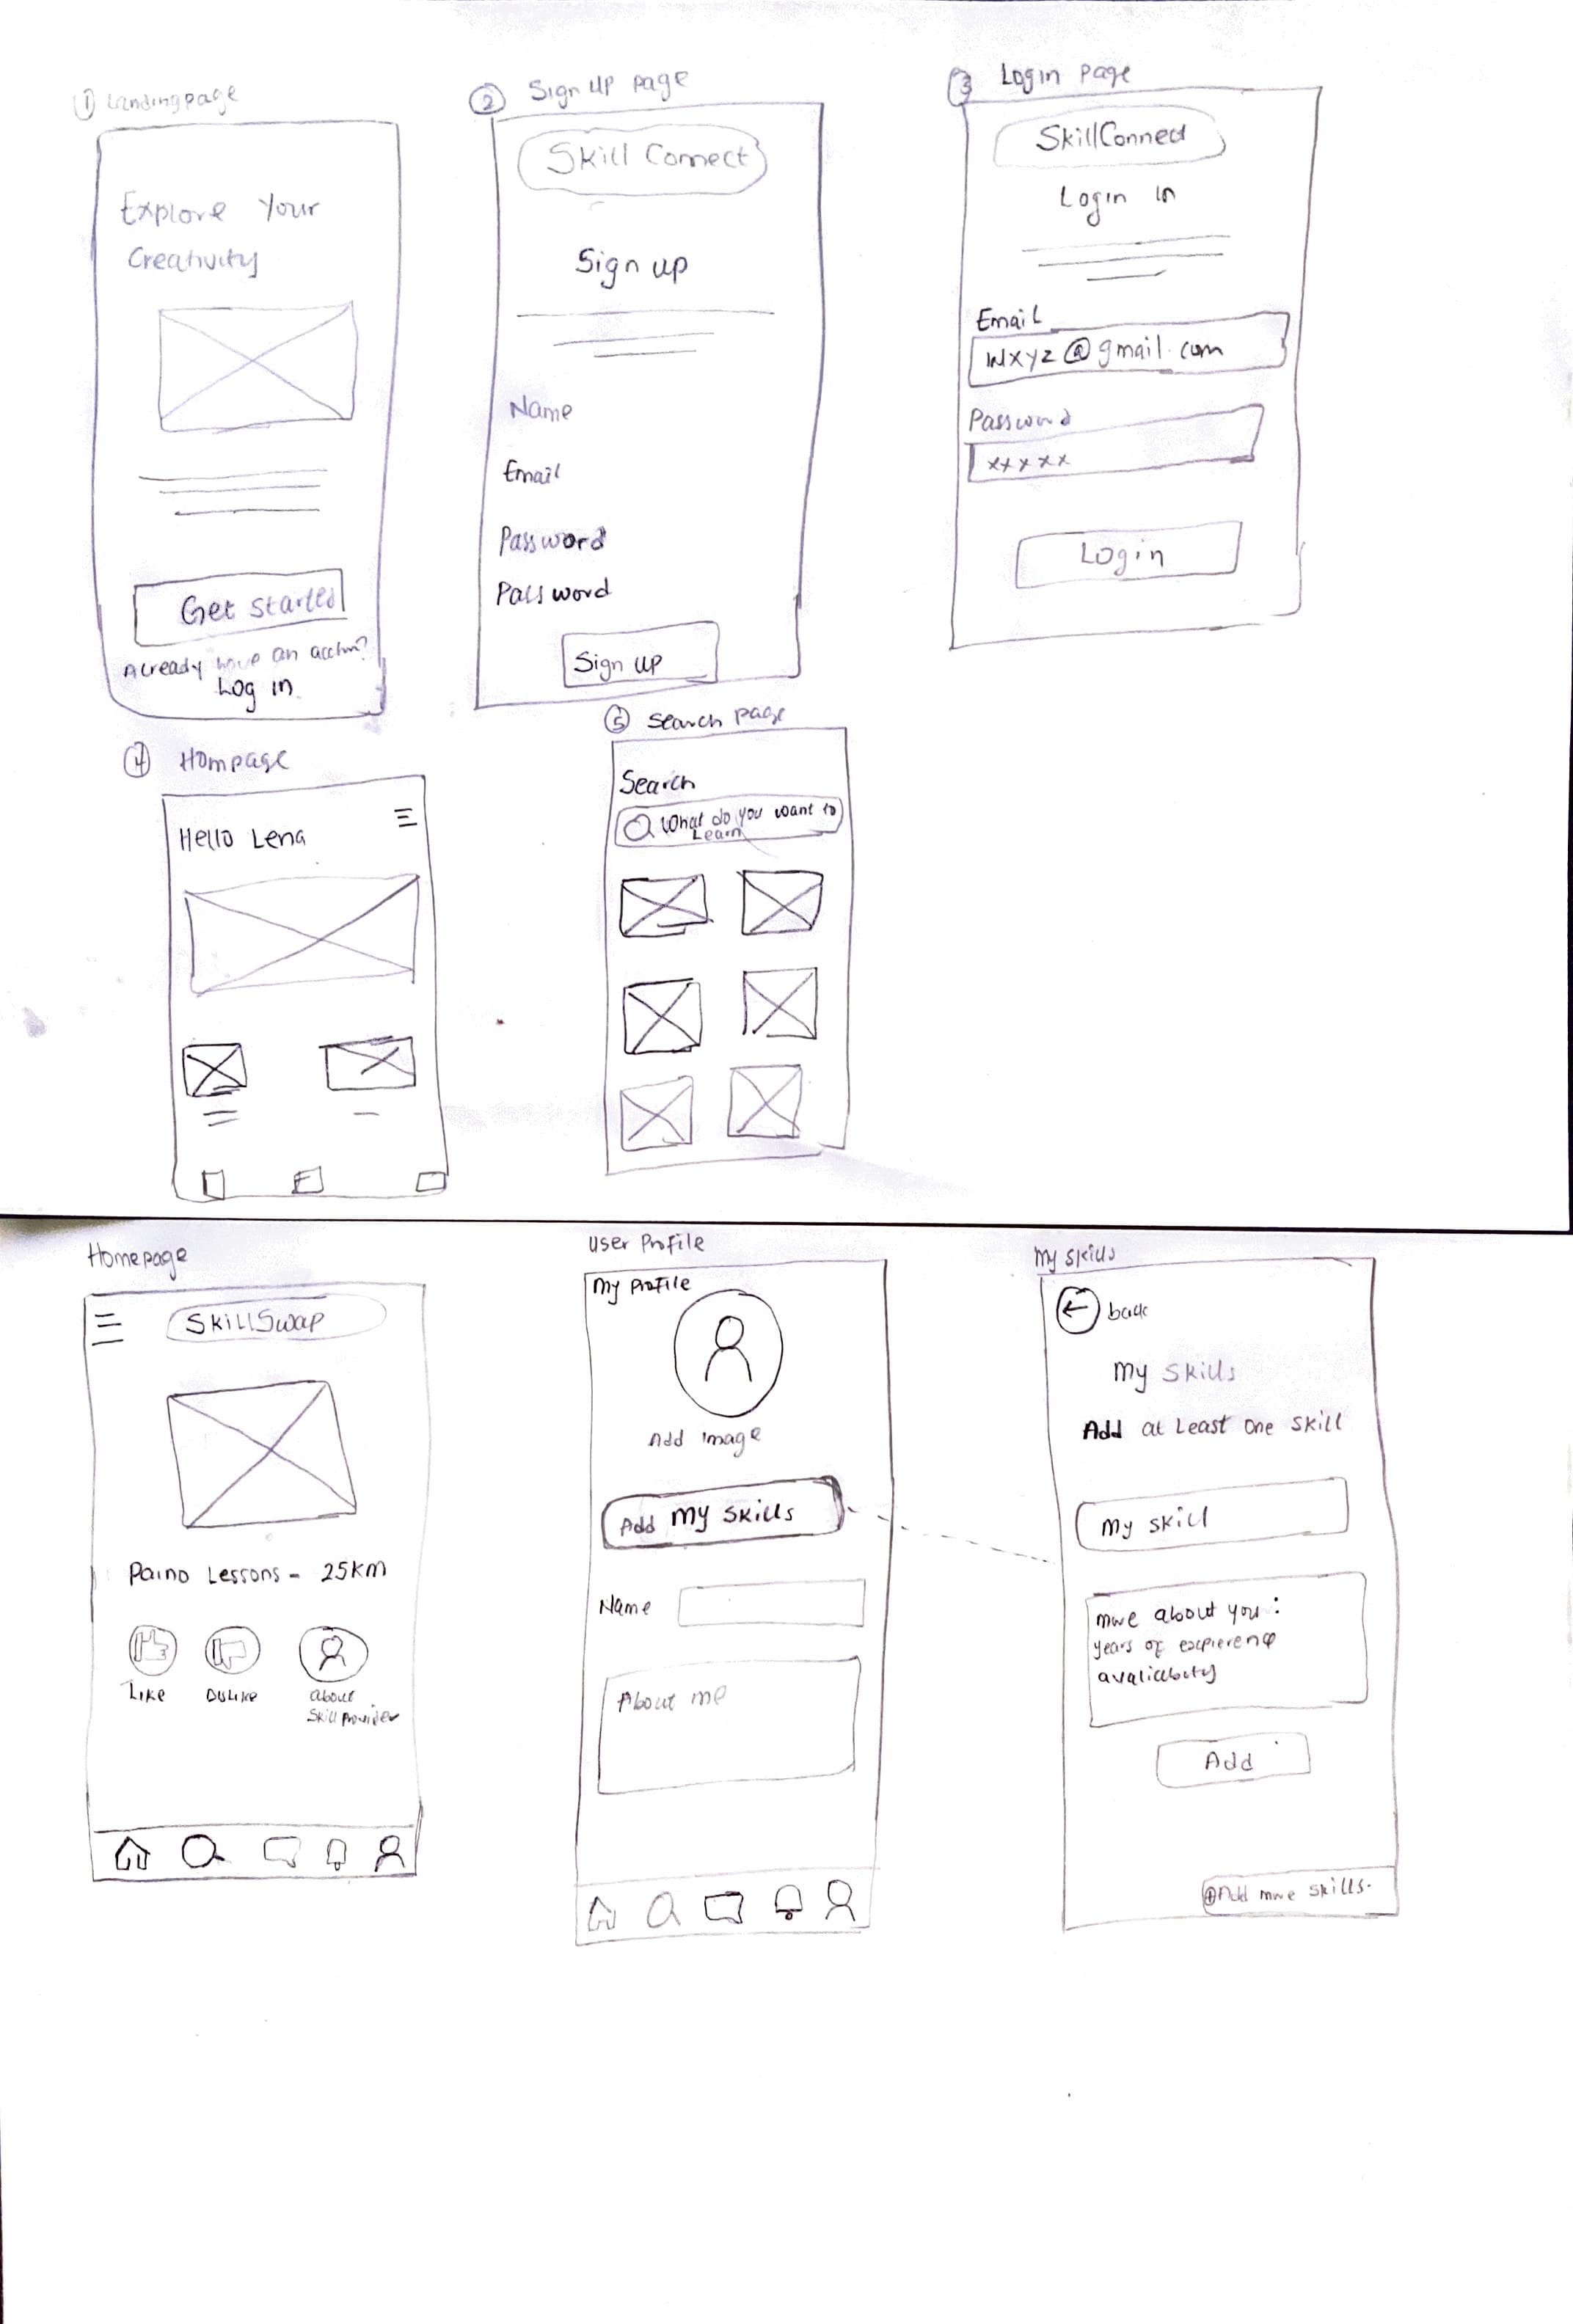 ① Landingpage
Explore Your
Creativity
Get started
Already have an
Log in
② Sign UP page
Skill Connect
Sign up
Name
Email
Password
Password
Sign up
③ Login page
SkillConnect
Login in
Email
wxyz@gmail.com
Password
xxxxx
Login
④ Hompage
Hello Lena
⑤ Search page
Search
What do you want to
Learn
Homepage
SkillSwap
Paino Lessons - 25KM
Like
Dislike
about
Skill provider
User Profile
My Profile
Add image
Add My Skills
Name
About me
My skills
back
My Skills
Add at Least One skill
My skill
more about you:
years of
Add
Add more skills.